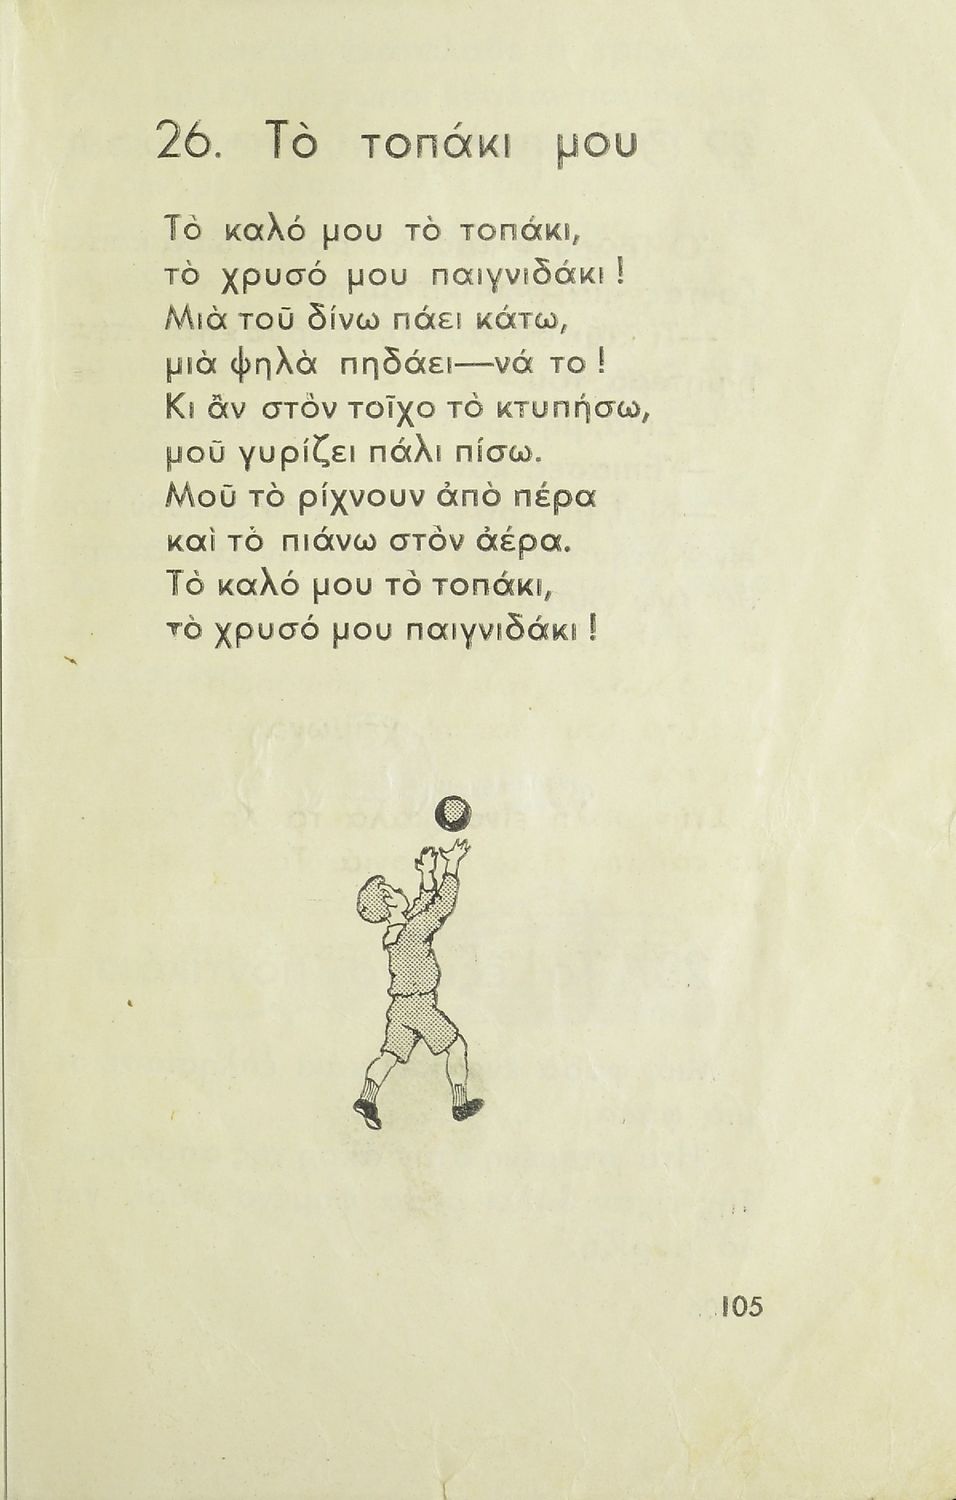 26. Τὸ τοπάκι μου
Τὸ καλό μου τὸ τοπάκι,
τὸ χρυσό μου παιγνιδάκι !
Μιὰ τοῦ δίνω πάει κάτω,
μιὰ ψηλὰ πηδάει—νά το !
Κι ἂν στὸν τοῖχο τὸ κτυπήσω,
μοῦ γυρίζει πάλι πίσω.
Μοῦ τὸ ρίχνουν ἀπὸ πέρα
καὶ τὸ πιάνω στὸν ἀέρα.
Τὸ καλό μου τὸ τοπάκι,
τὸ χρυσό μου παιγνιδάκι !
105